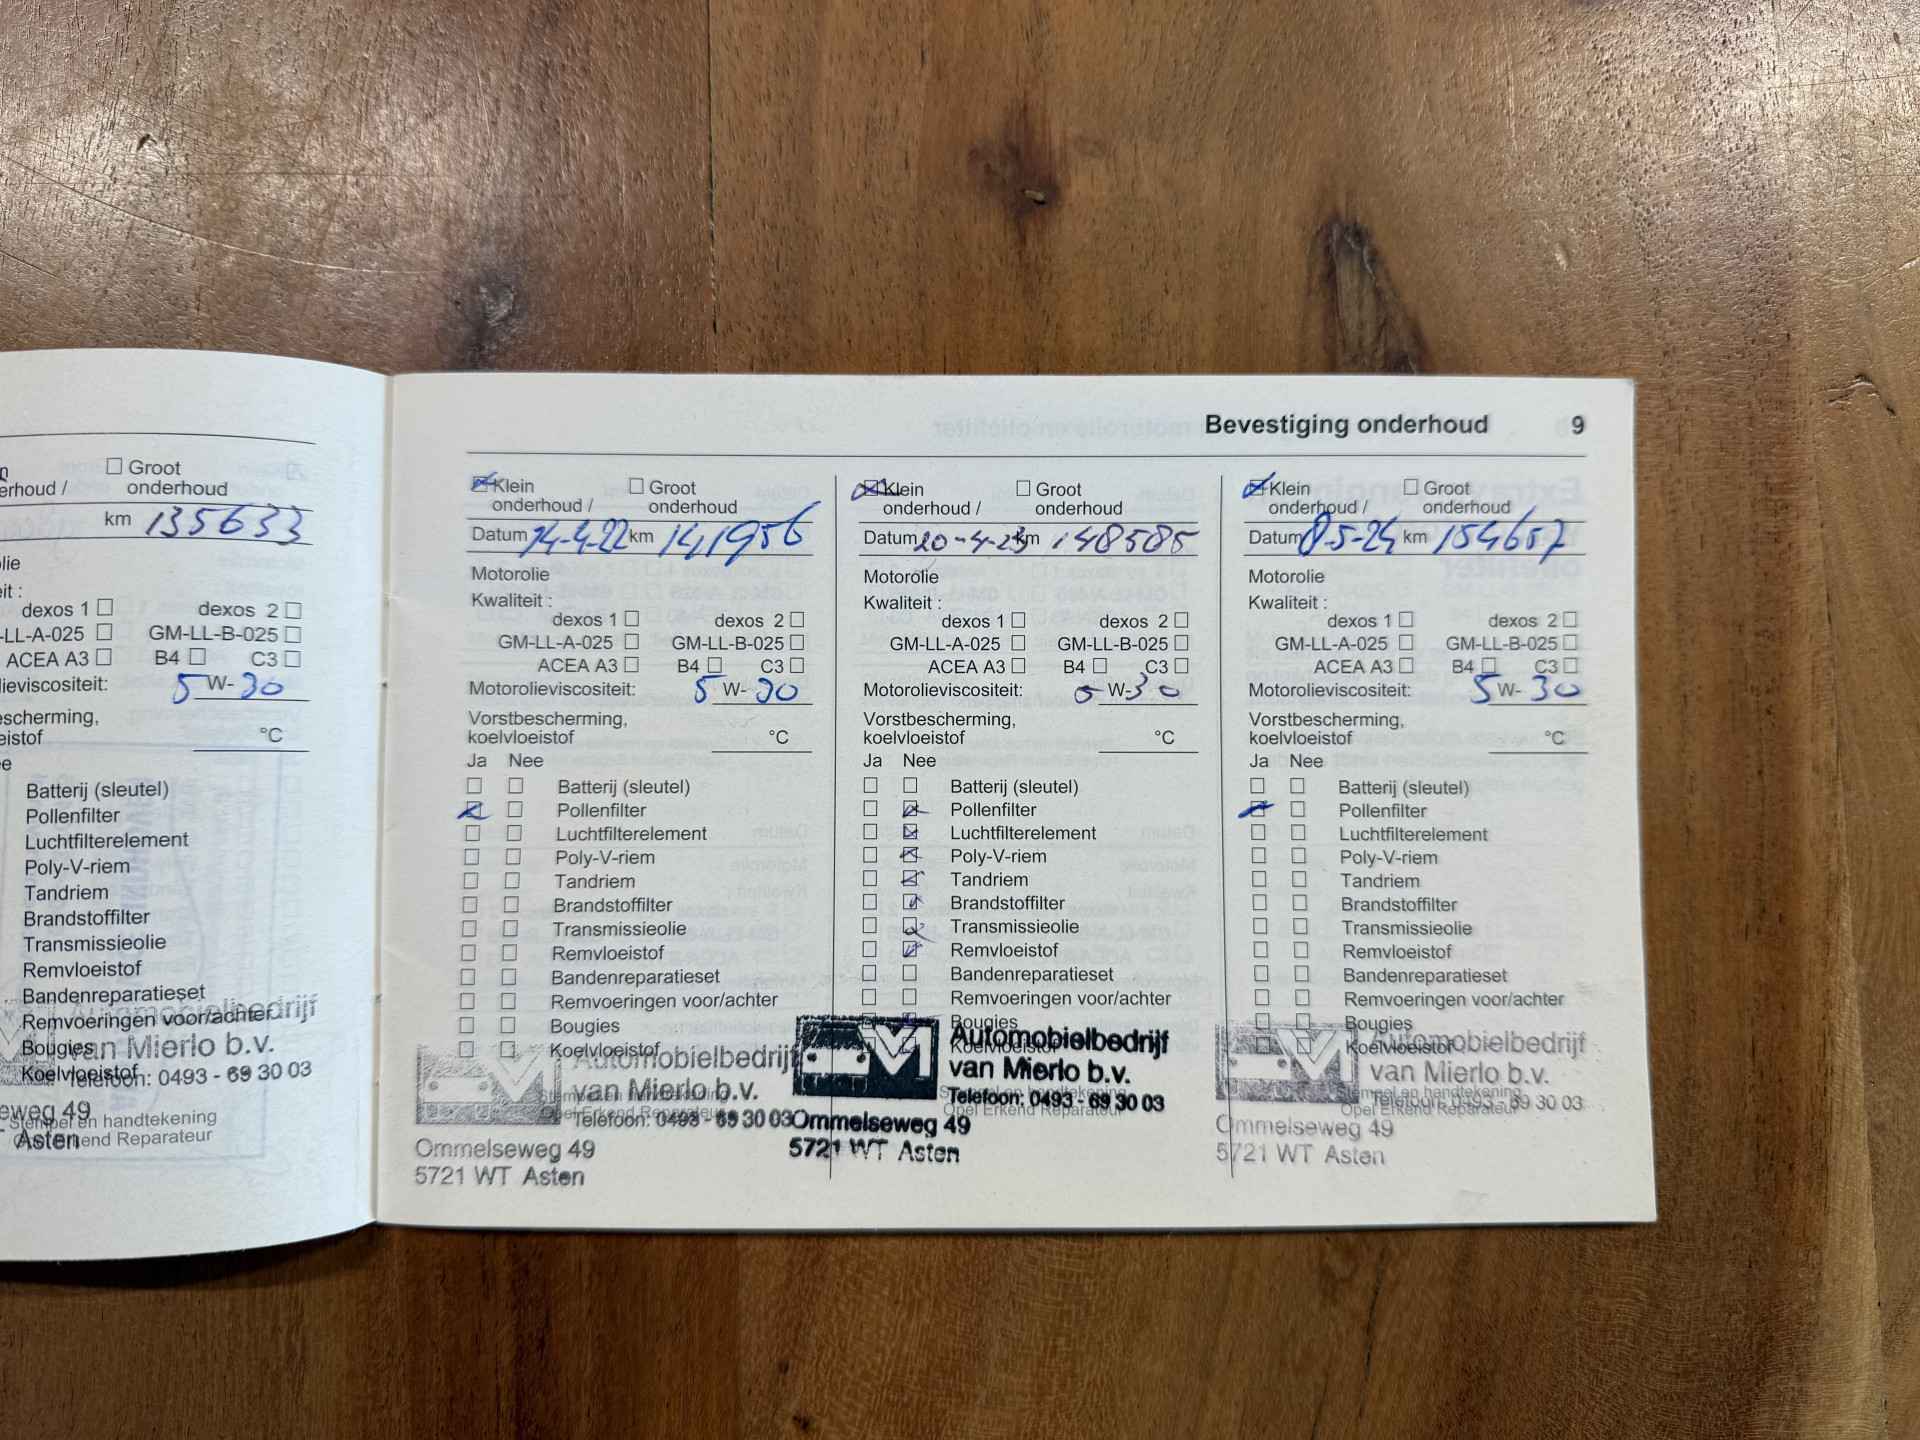 Groot
erhoud / onderhoud
km 135633
lie
eit :
dexos 1 dexos 2
-LL-A-025 GM-LL-B-025
ACEA A3 B4 C3
lieviscositeit: 5 W- 30
escherming,
eistof °C
e
Batterij (sleutel)
Pollenfilter
Luchtfilterelement
Poly-V-riem
Tandriem
Brandstoffilter
Transmissieolie
Remvloeistof
Bandenreparatieset
Remvoeringen voor/achter
Bougies
Koelvloeistof
Automobielbedrijf
van Mierlo b.v.
Telefoon: 0493 - 69 30 03
eweg 49
Asten
Stempel en handtekening
Opel Erkend Reparateur
Bevestiging onderhoud 9
Klein Groot
onderhoud / onderhoud
Datum 14-4-22 km 141956
Motorolie
Kwaliteit :
dexos 1 dexos 2
GM-LL-A-025 GM-LL-B-025
ACEA A3 B4 C3
Motorolieviscositeit: 5 W- 30
Vorstbescherming,
koelvloeistof °C
Ja Nee
Batterij (sleutel)
Pollenfilter
Luchtfilterelement
Poly-V-riem
Tandriem
Brandstoffilter
Transmissieolie
Remvloeistof
Bandenreparatieset
Remvoeringen voor/achter
Bougies
Koelvloeistof
Automobielbedrijf
van Mierlo b.v.
Stempel en handtekening
Opel Erkend Reparateur
Telefoon: 0493 - 69 30 03
Ommelseweg 49
5721 WT Asten
Klein Groot
onderhoud / onderhoud
Datum 20-4-23 km 148585
Motorolie
Kwaliteit :
dexos 1 dexos 2
GM-LL-A-025 GM-LL-B-025
ACEA A3 B4 C3
Motorolieviscositeit: 5 W- 30
Vorstbescherming,
koelvloeistof °C
Ja Nee
Batterij (sleutel)
Pollenfilter
Luchtfilterelement
Poly-V-riem
Tandriem
Brandstoffilter
Transmissieolie
Remvloeistof
Bandenreparatieset
Remvoeringen voor/achter
Bougies
Koelvloeistof
Automobielbedrijf
van Mierlo b.v.
Stempel en handtekening
Opel Erkend Reparateur
Telefoon: 0493 - 69 30 03
Ommelseweg 49
5721 WT Asten
Klein Groot
onderhoud / onderhoud
Datum 8-5-24 km 154657
Motorolie
Kwaliteit :
dexos 1 dexos 2
GM-LL-A-025 GM-LL-B-025
ACEA A3 B4 C3
Motorolieviscositeit: 5 W- 30
Vorstbescherming,
koelvloeistof °C
Ja Nee
Batterij (sleutel)
Pollenfilter
Luchtfilterelement
Poly-V-riem
Tandriem
Brandstoffilter
Transmissieolie
Remvloeistof
Bandenreparatieset
Remvoeringen voor/achter
Bougies
Koelvloeistof
Automobielbedrijf
van Mierlo b.v.
Stempel en handtekening
Opel Erkend Reparateur
Telefoon: 0493 - 69 30 03
Ommelseweg 49
5721 WT Asten